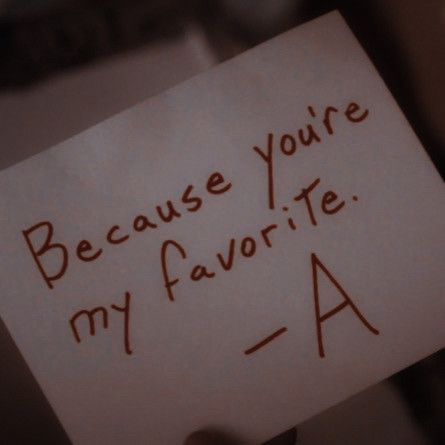 Because you're
my favorite.
-A